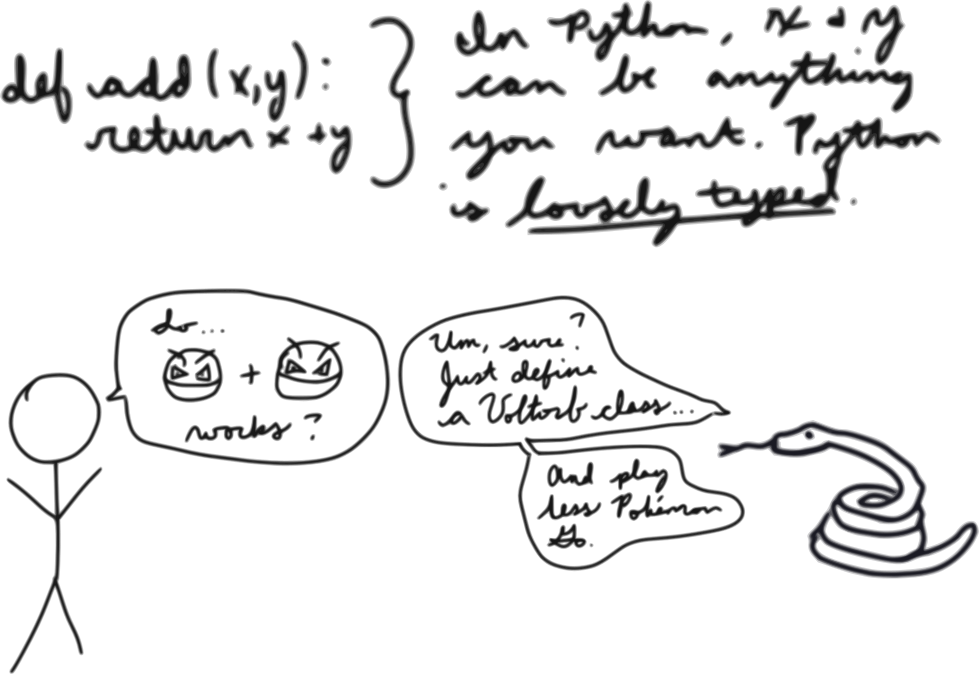 def add(x,y):
return x+y
In Python, x & y
can be anything
you want. Python
is loosely typed.
So...
+
works?
Um, sure?
Just define
a Voltorb class...
And play
less Pokémon
Go.